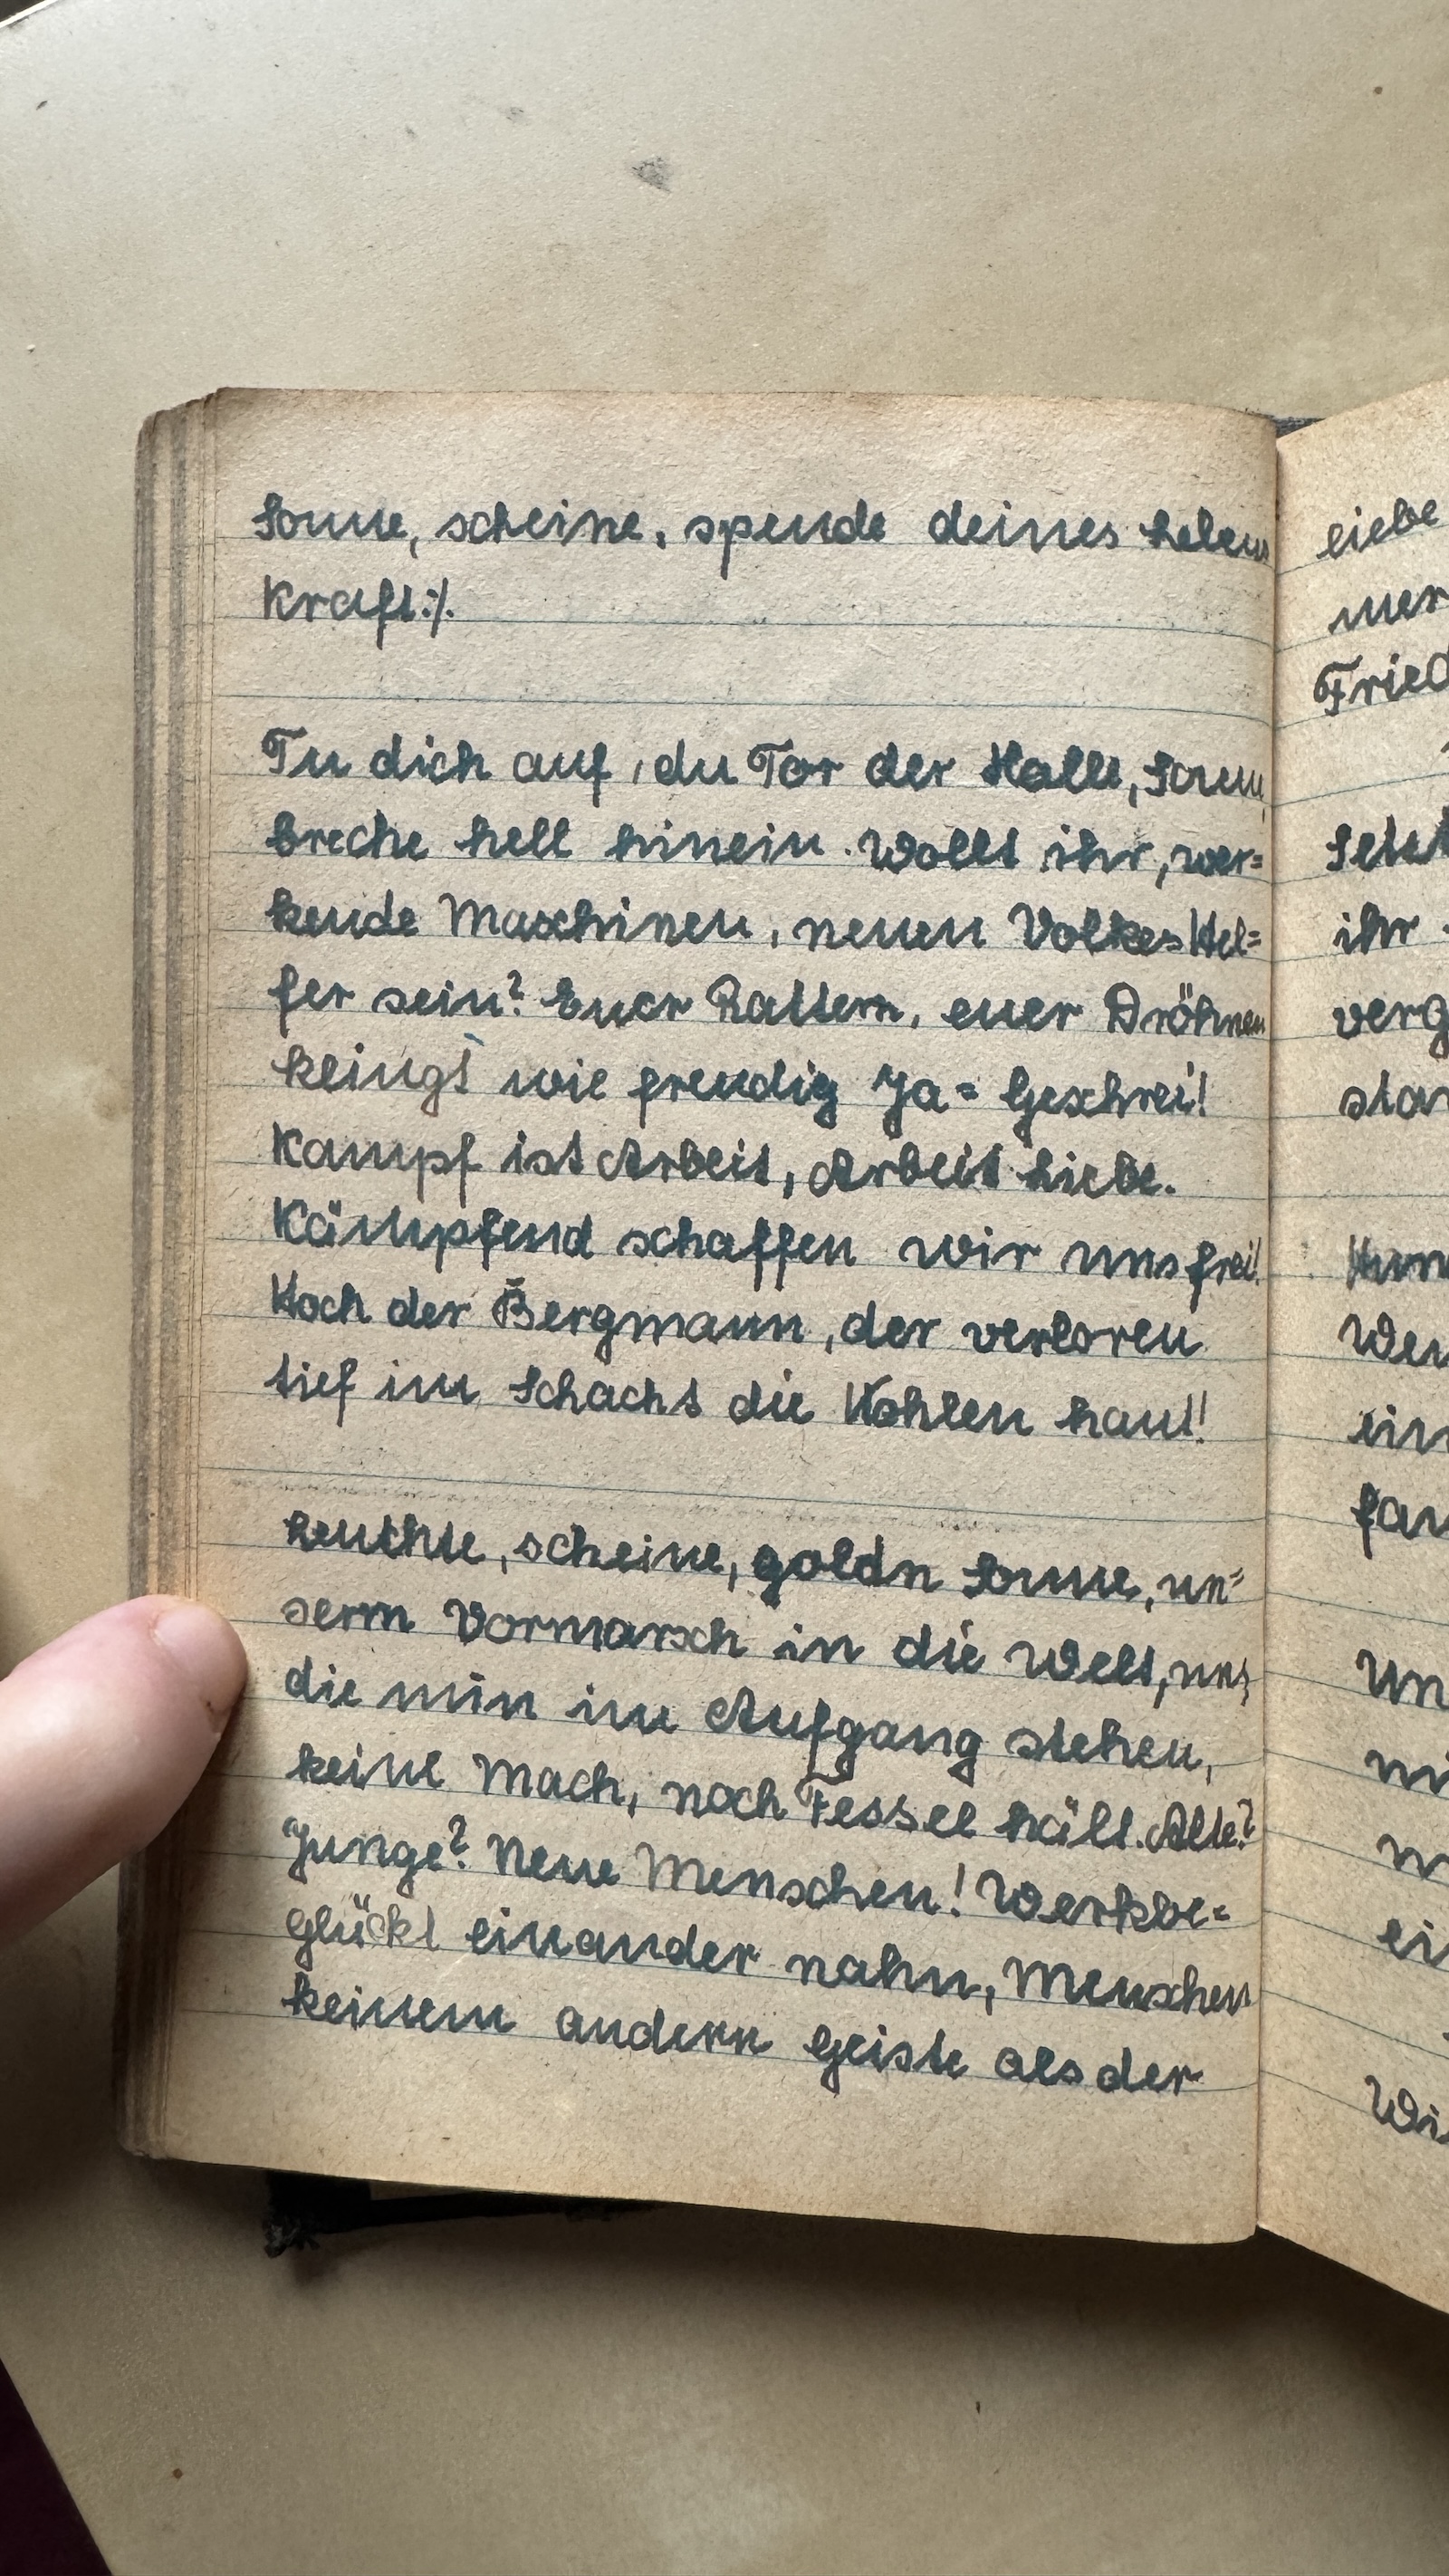 Sonne, scheine, spende deines Lebens
Kraft:/.
Tu dich auf, du Tor der Halle, Sonne,
breche hell hinein. Wollt ihr, wer=
kende Maschinen, neuen Volkes Hel=
fer sein? Euer Rattern, euer Dröhnen
klingt wie freudig Ja= Geschrei!
Kampf ist Arbeit, Arbeit Liebe.
Kämpfend schaffen wir uns frei!
Hoch der Bergmann, der verloren
tief im Schacht die Kohlen haut!
Leuchte, scheine, goldn Sonne, un=
serm Vormarsch in die Welt, uns,
die nun im Aufgang stehen,
keine Mach, noch Fessel hält. Alte?
Junge? Neue Menschen! Werkbe=
glückt einander nahn, Menschen
keinem andern Geiste als der
liebe
Fried
ihr